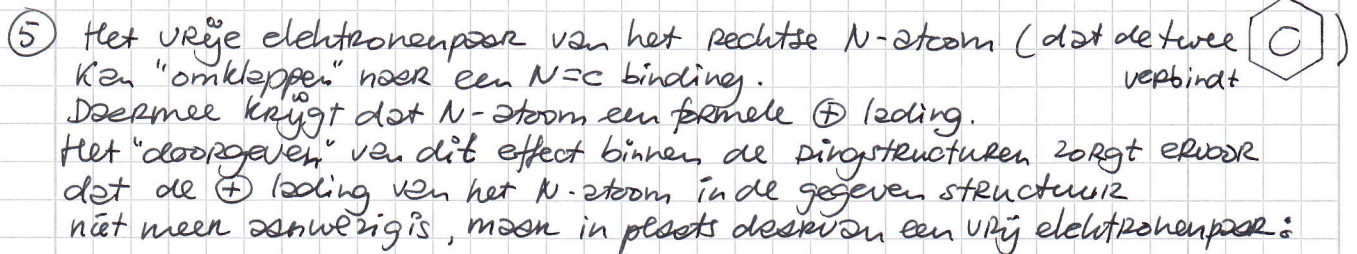 ⑤ Het vrije elektronenpaar van het rechtse N-atoom (dat de twee [C])
verbindt
Kan "omklappen" naar een N=C binding.
Daarmee krijgt dat N-atoom een formele ⊕ lading.
Het "doorgeven" van dit effect binnen de ringstructuren zorgt ervoor
dat de ⊕ lading van het N-atoom in de gegeven structuur
niet meer aanwezig is, maar in plaats daarvan een vrij elektronenpaar: